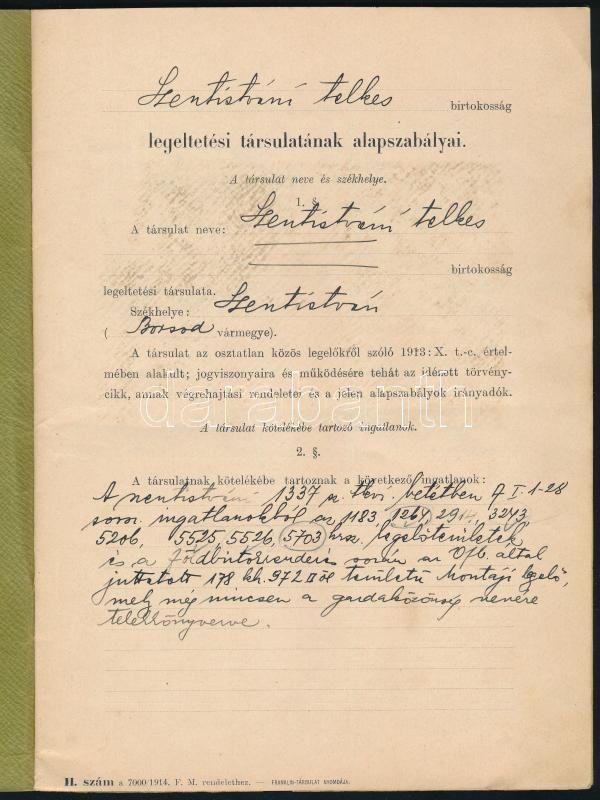 Szentistváni telkes birtokosság
legeltetési társulatának alapszabályai.
A társulat neve és székhelye.
1. §.
A társulat neve: Szentistváni telkes
birtokosság
legeltetési társulata.
Székhelye: Szentistván
( Borsod vármegye).
A társulat az osztatlan közös legelőkről szóló 1913: X. t.-c. értel-
mében alakult; jogviszonyaira és működésére tehát az idézett törvény-
cikk, annak végrehajtási rendeletei és a jelen alapszabályok irányadók.
A társulat kötelékébe tartozó ingatlanok.
2. §.
A társulatnak kötelékébe tartoznak a következő ingatlanok:
A szentistváni 1337 sz. tkvi. betétben A I. 1-28
sorsz. ingatlanokból az 1183, 1264, 3243,
5206, 5525, 5526, 5703 hrsz. legelőterületek
és a földbirtokrendezés során az Ofb. által
juttatott 178 kh. 972 □öl területű Montáji legelő,
mely még nincsen a gazdaközönség nevére
telekkönyvezve.
II. szám a 7000/1914. F. M. rendelethez. — FRANKLIN-TÁRSULAT NYOMDÁJA.
darabanth